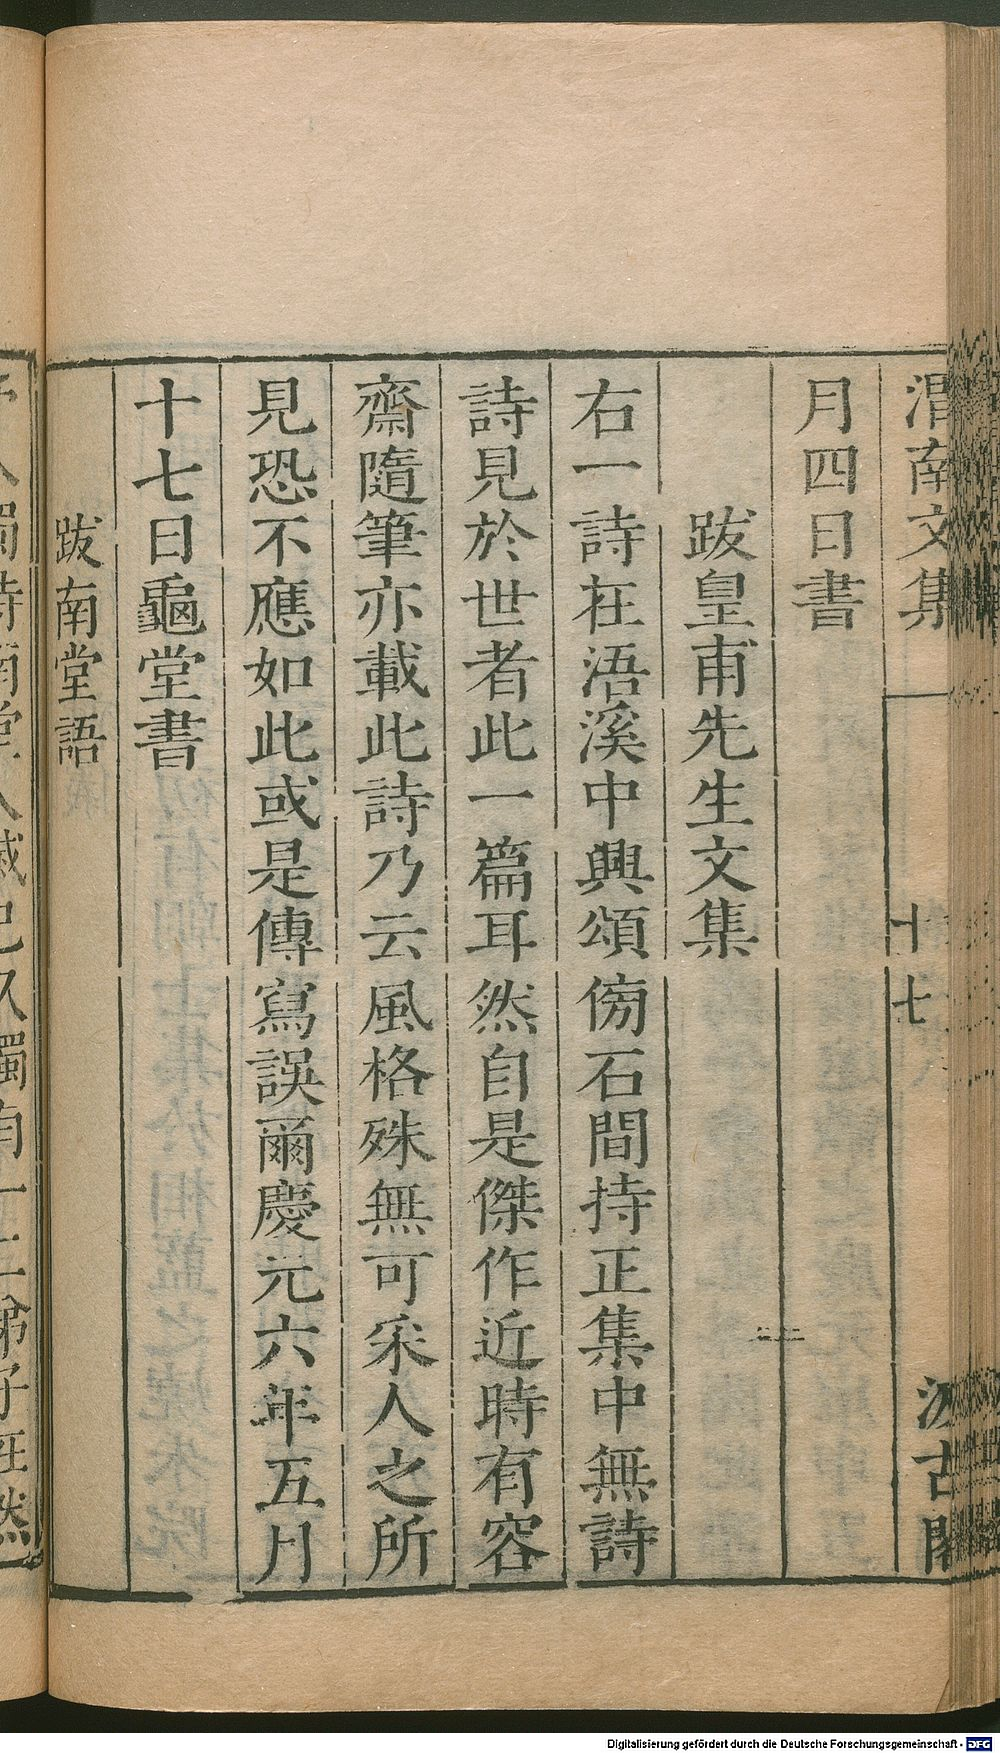 渭南文集 十七 汲古閣
月四日書
跋皇甫先生文集
右一詩在浯溪中興頌傍石間持正集中無詩
詩見於世者此一篇耳然自是傑作近時有容
齋隨筆亦載此詩乃云風格殊無可采人之所
見恐不應如此或是傳寫誤爾慶元六年五月
十七日龜堂書
跋南堂語
Digitalisierung gefördert durch die Deutsche Forschungsgemeinschaft - DFG